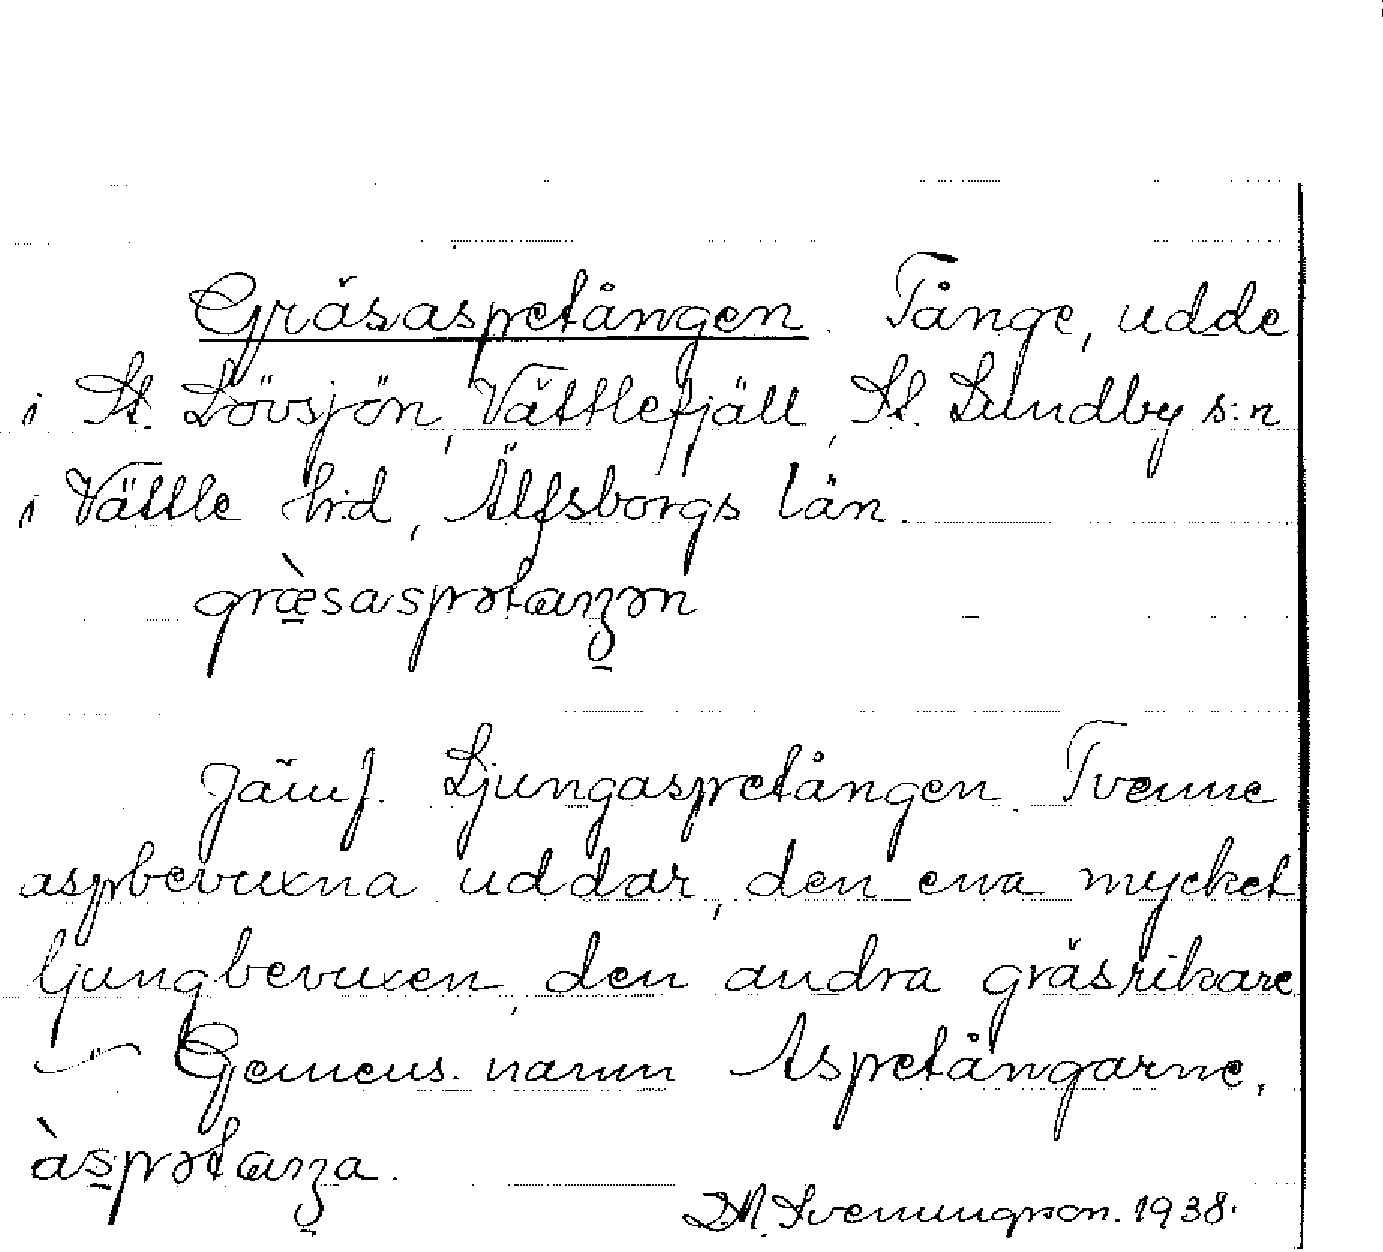 Gräsaspetången. Tånge, udde
i St. Lövsjön, Vättlefjäll, St. Lundby s:n
i Vättle hd, Älfsborgs län.
græ̀saspətaŋən
Jämf. Ljungaspetången. Tvenne
aspbevuxna uddar, den ena mycket
ljungbevuxen, den andra gräsrikare
– Gemens. namn Aspetångarne,
àspətaŋa.
Svenungson. 1938.